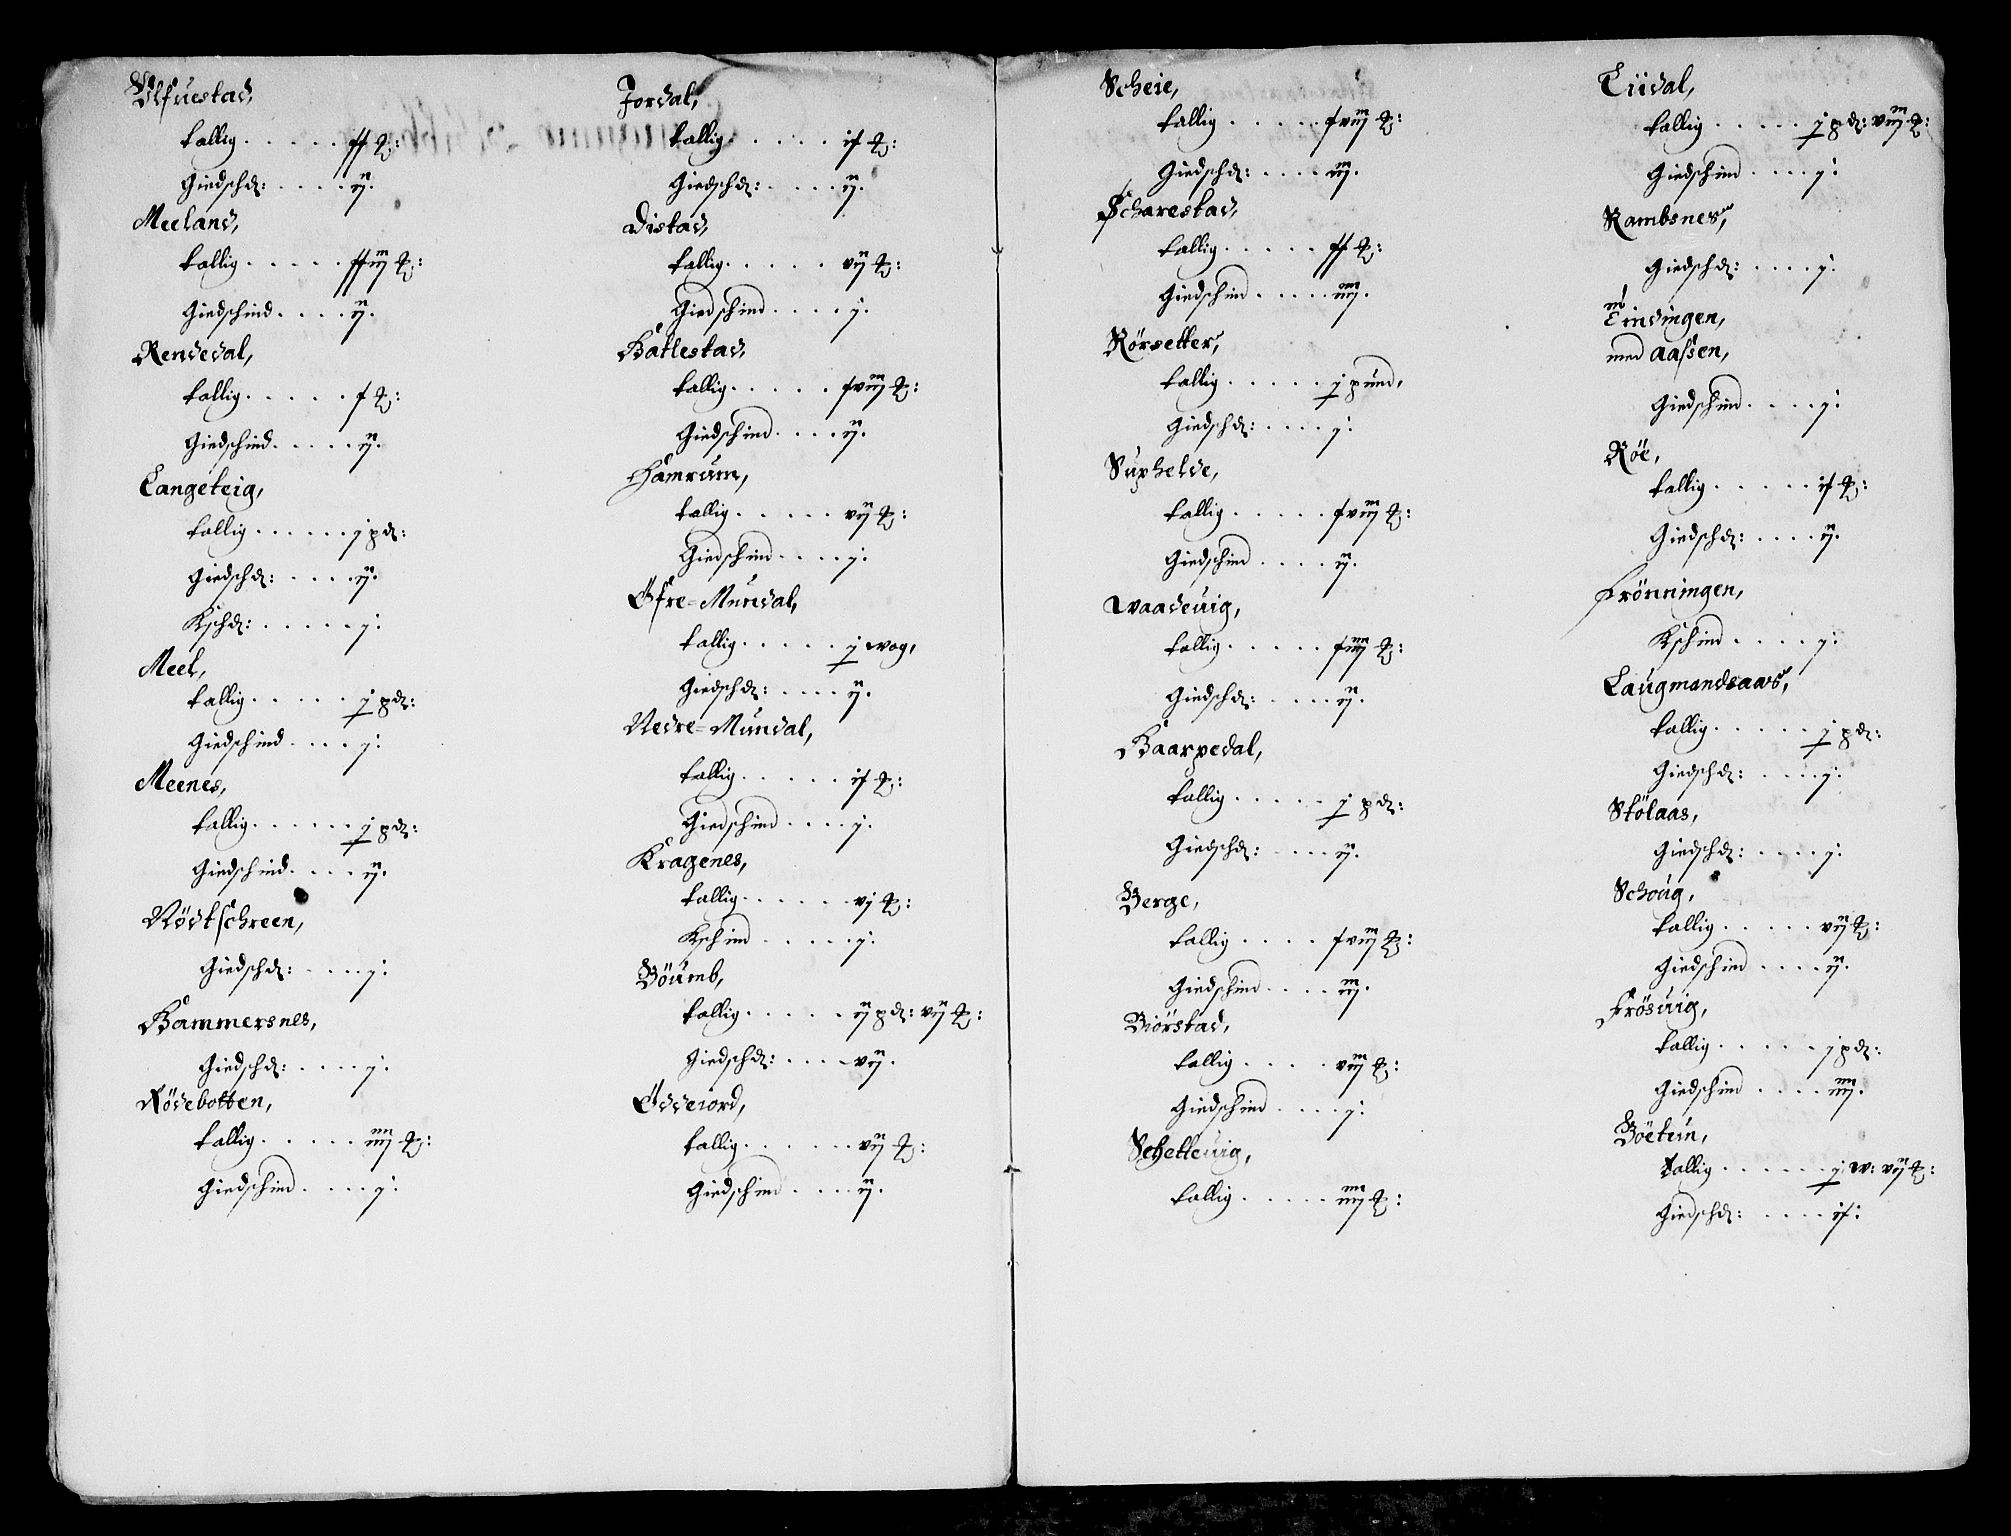 Ulfuestad,
tallig . . . . . ff ℔:
Giedschd: . . . . ij.
Meeland,
tallig . . . . . ffiij ℔:
Giedschind . . . . ij.
Rendedal,
tallig . . . . . f ℔:
Giedschind . . . . . ij.
Langeteig,
tallig . . . . . . j pd:
Giedschd: . . . . ij.
Kschd: . . . . . j.
Meel,
tallig . . . . . j pd:
Giedschind . . . . j.
Meenes,
tallig . . . . . . j pd:
Giedschind . . . . ij.
Nödtschreen,
Giedschd: . . . . . j.
Hammersnes,
Giedschd: . . . . . j.
Rödebotten,
tallig . . . . . iiij ℔:
Giedschind . . . . j.
Jordal,
tallig . . . . . if ℔:
Giedschd: . . . . . ij.
Distad,
tallig . . . . . vij ℔:
Giedschind . . . . j.
Hatlestad,
tallig . . . . . fviij ℔:
Giedschind . . . . ij.
Hamrum,
tallig . . . . . vij ℔:
Giedschind . . . . j.
Öfre-Mundal,
tallig . . . . . j wog,
Giedschd: . . . . ij.
Nedre-Mundal,
tallig . . . . . if ℔:
Giedschind . . . . j.
Kragenes,
tallig . . . . . . vj ℔:
Kschind . . . . . j.
Böumb,
tallig . . . . . ij pd: vij ℔:
Giedschd: . . . . vij.
Öddeiord,
tallig . . . . . . vij ℔:
Giedschind . . . . ij.
Scheie,
tallig . . . . . fviij ℔:
Giedschd: . . . . iij.
Scharestad,
tallig . . . . . ff ℔:
Giedschind . . . . . iiij.
Rörsetter,
tallig . . . . . j pund,
Giedschd: . . . . j.
Suphelde,
tallig . . . . . fviij ℔:
Giedschind . . . . ij.
Waadeuig,
tallig . . . . . fiiij ℔:
Giedschd: . . . . . ij.
Haarpedal,
tallig . . . . . j pd:
Giedschd: . . . . . ij.
Berge,
tallig . . . . fviij ℔:
Giedschind . . . . iij.
Biörstad,
tallig . . . . viij ℔:
Giedschind . . . . j.
Schetleuig,
tallig . . . . . iiij ℔:
Eiidal,
tallig . . . . . j pd: viij ℔:
Giedschind . . . . j.
Rambsnes,
Giedschd: . . . . j.
Eindingen,
med Aassen,
Giedschind . . . . j.
Röe,
tallig . . . . . if ℔:
Giedschd: . . . . ij.
Frönningen,
Kschind . . . . j.
Laugmandsaas,
tallig . . . . . j pd:
Giedschd: . . . . j.
Stölaas,
Giedschd: . . . . j.
Schoug,
tallig . . . . . vij ℔:
Giedschind . . . . ij.
Frösuig,
tallig . . . . . j pd:
Giedschind . . . . iiij.
Böetun,
tallig . . . . . . j w: vij ℔:
Giedschd: . . . . if: